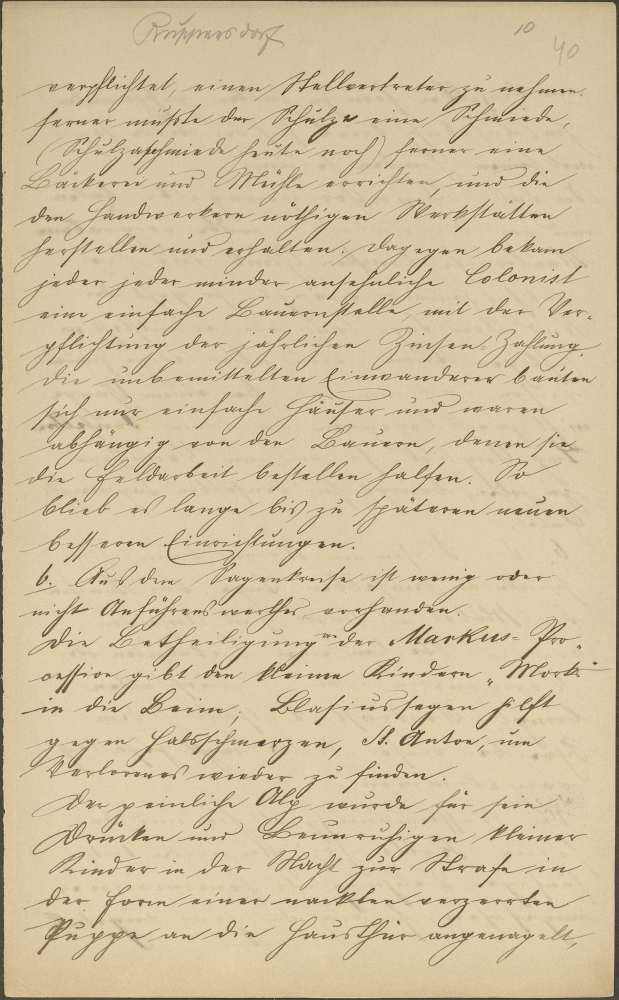 Ruppersdorf
10
40
verpflichtet, einen Stellvertreter zu nehmen.
ferner mußte der Schulze eine Schmiede,
(Schulzaschmiede heute noch) ferner eine
Bäckerei und Mühle errichten, und die
den Handwerkern nöthigen Werkstätten
herstellen und erhalten. Dagegen bekam
jeder jeder minder ansehnliche Colonist
eine einfache Bauernstelle, mit der Ver-
pflichtung der jährlichen Zinsen-Zahlung.
Die unbemittelten Einwanderer bauten
sich nur einfache Häuser und waren
abhängig von den Bauern, denen sie
die Feldarbeit bestellen halfen. So
blieb es lange bis zu späteren neuen
besseren Einrichtungen.
6. Aus dem Sagenkreise ist wenig oder
nicht Anführenswerthes vorhanden.
Die Betheiligung an der Markus-Pro-
cession gibt den kleinen Kindern „Mark"
in die Beine; Blasiussegen hilft
gegen Halsschmerzen, St. Anton, um
Verlorenes wieder zu finden.
Der peinliche Alp wurde für sein
Drücken und Beunruhigen kleiner
Kinder in der Nacht zur Strafe in
der Form einer nackten verzerrten
Puppe an die Hausthür angenagelt,